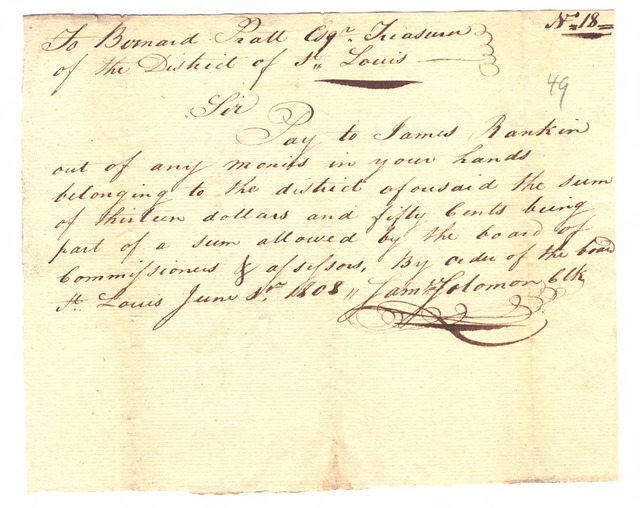 No. 18
To Bernard Pratt Esqr. Treasurer
of the District of St. Louis
49
Sir
Pay to James Rankin
out of any monies in your hands
belonging to the district afousaid the sum
of thirteen dollars and fifty Cents being
part of a sum allowed by the board of
Commissioners & assessors, By order of the board
St. Louis June 1st. 1808 Saml Solomon Clk